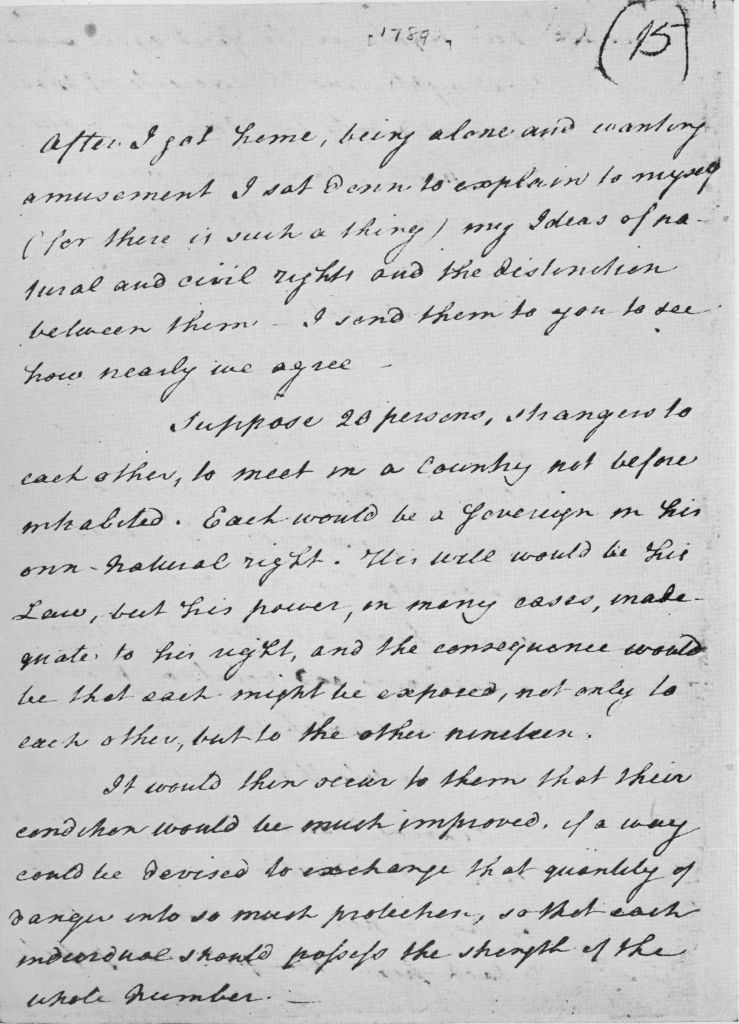 1789
(15)
After I got home, being alone and wanting
amusement I sat down to explain to myself
(for there is such a thing) my Ideas of na-
tural and civil rights and the distinction
between them - I send them to you to see
how nearly we agree -
Suppose 20 persons, strangers to
each other, to meet in a Country not before
inhabited. Each would be a Sovereign in his
own natural right. His will would be his
Law, but his power, in many cases, inade-
quate to his right, and the consequence would
be that each might be exposed, not only to
each other, but to the other nineteen.
It would then occur to them that their
condition would be much improved, if a way
could be devised to exchange that quantity of
danger into so much protection, so that each
individual should possess the strength of the
whole number. -